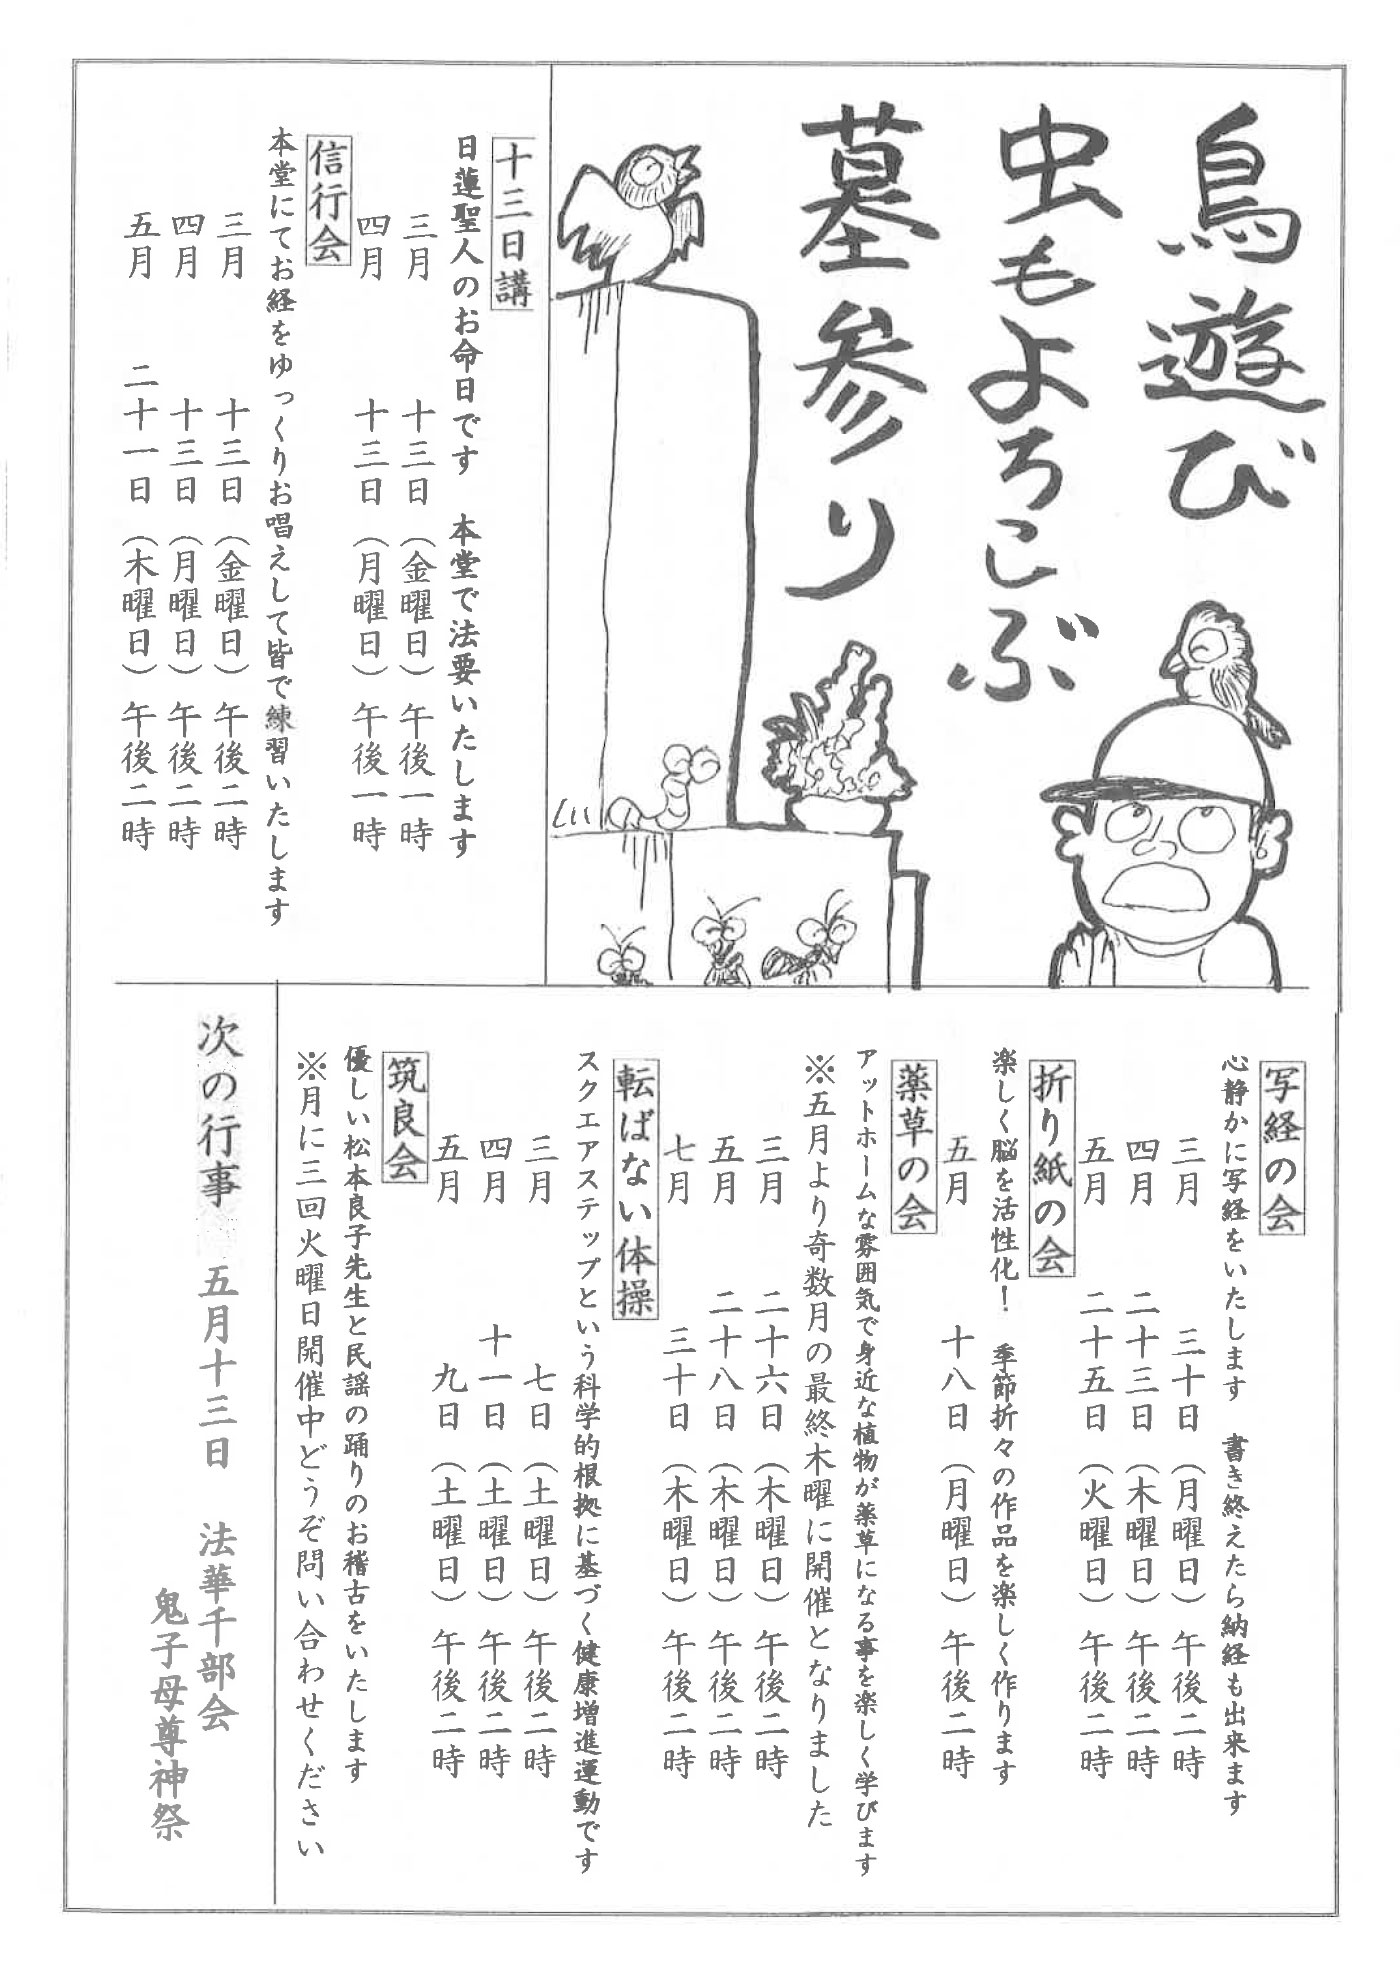 鳥遊び
虫もよろこぶ
墓参り
十三日講
日蓮聖人のお命日です　本堂で法要いたします
三月　十三日（金曜日）午後一時
四月　十三日（月曜日）午後一時
信行会
本堂にてお経をゆっくりお唱えして皆で練習いたします
三月　十三日（金曜日）午後二時
四月　十三日（月曜日）午後二時
五月　二十一日（木曜日）午後二時
写経の会
心静かに写経をいたします　書き終えたら納経も出来ます
三月　三十日（月曜日）午後二時
四月　二十三日（木曜日）午後二時
五月　二十五日（火曜日）午後二時
折り紙の会
楽しく脳を活性化！　季節折々の作品を楽しく作ります
五月　十八日（月曜日）午後二時
薬草の会
アットホームな雰囲気で身近な植物が薬草になる事を楽しく学びます
※五月より奇数月の最終木曜に開催となりました
三月　二十六日（木曜日）午後二時
五月　二十八日（木曜日）午後二時
七月　三十日（木曜日）午後二時
転ばない体操
スクエアステップという科学的根拠に基づく健康増進運動です
三月　七日（土曜日）午後二時
四月　十一日（土曜日）午後二時
五月　九日（土曜日）午後二時
筑良会
優しい松本良子先生と民謡の踊りのお稽古をいたします
※月に三回火曜日開催中どうぞ問い合わせください
次の行事　五月十三日　法華千部会
鬼子母尊神祭